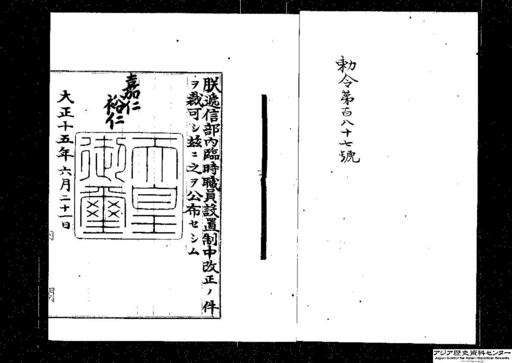 勅令第百八十七號
朕遞信部内臨時職員設置制中改正ノ件
ヲ裁可シ玆ニ之ヲ公布セシム
嘉仁
裕仁
天皇
御璽
大正十五年六月二十一日
内閣
アジア歴史資料センター
Japan Center for Asian Historical Records